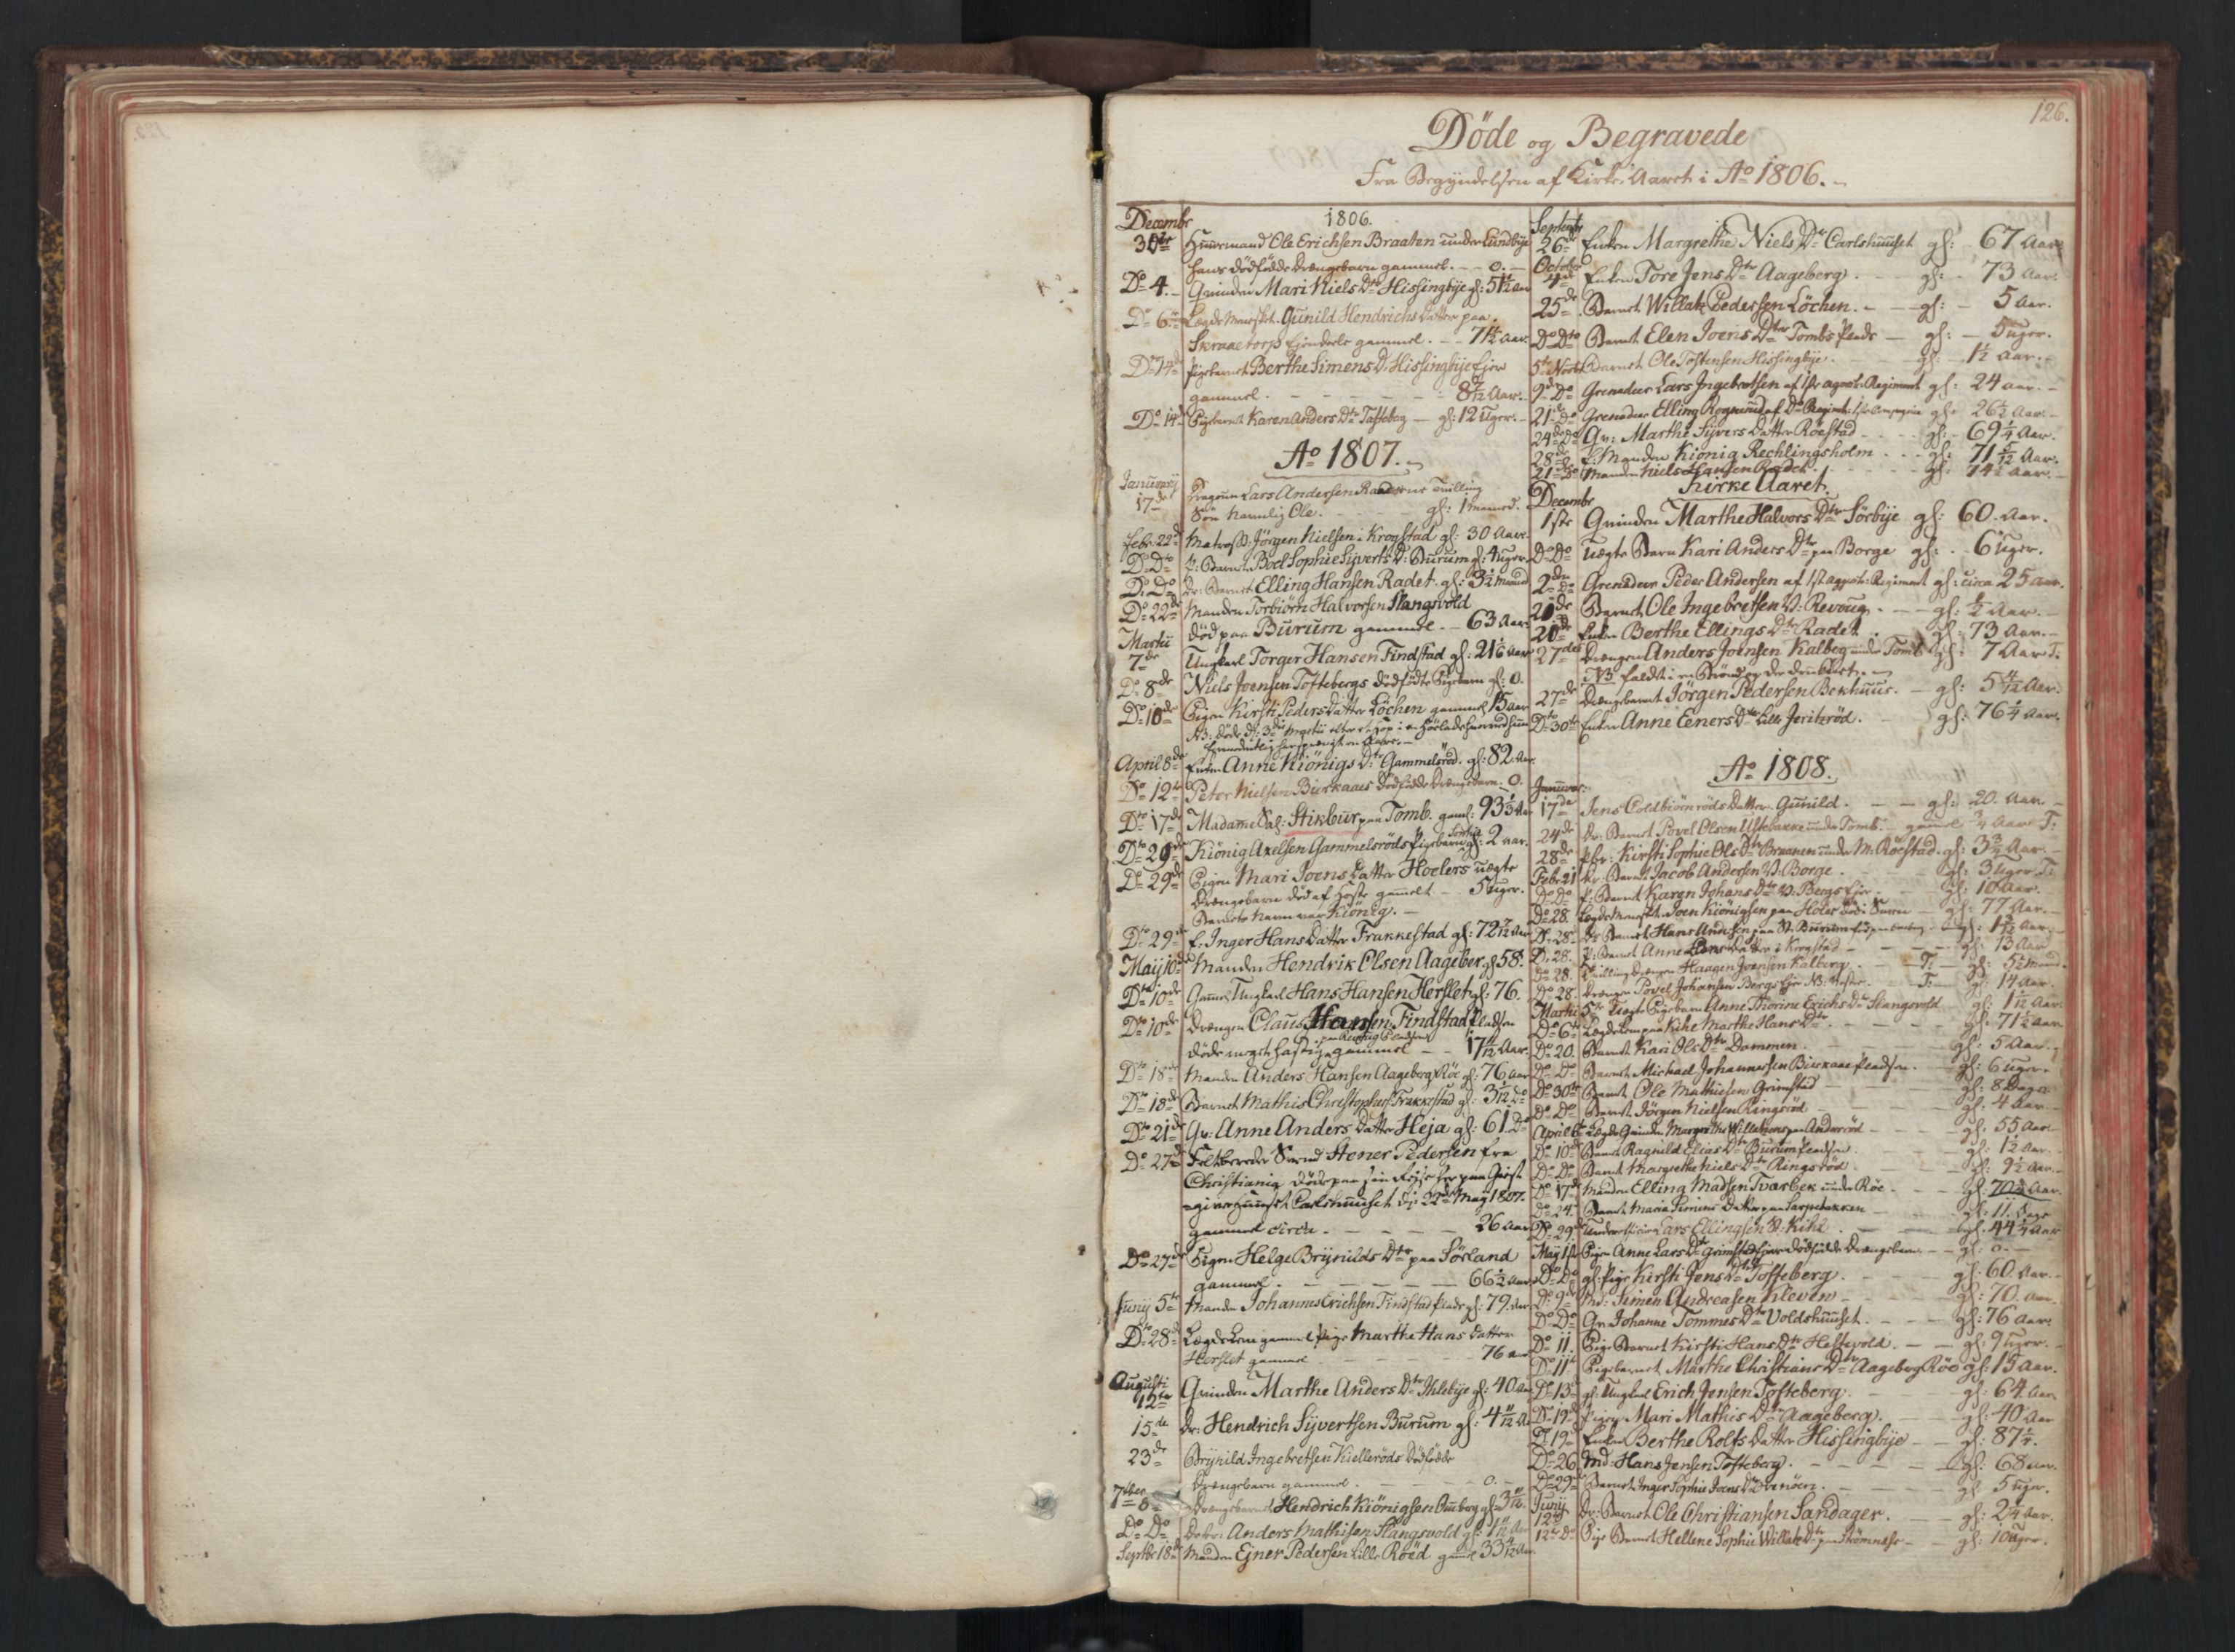 126.
Döde og Begravede
Fra Begyndelsen af Kirke Aaret i Ao 1806.
Decembr 1806.
30te Huusmand Ole Erichsen Braaten under Lundbÿe
hans dödfödde Drængebarn gammel. 0.
Do 4. Qvinden Mari Niels Dtr Hissingbÿe gl: 51½ Aar
Do 6te Lægds Mennesket Gunild Hendrichs Datter paa
Skraaetorp Eiendeele gammel. 71½ Aar.
Do 14de Pigebarnet Berthe Simens D. Hissingbÿe Eier
gammel 8 7/12 Aar.
Do 14de Pigebarnet Karen Anders Dtr Tofteberg gl: 12 Uger.
Ao 1807.
Januarÿ
17de Dragoun Lars Andersen Raadets Tvilling
Sön navnlig Ole. gl: 1 maaned.
Febr: 22de Matros: Jörgen Nielsen i Krogstad gl: 30 Aar.
Do Do P: Barnet Boel Sophie Sÿverts D: Burum gl: 4 Uger.
Do Do Dr: Barnet Elling Hansen Radet gl: 3½ maaned
Do 22de Manden Torbiörn Halvorsen Slangsvold
död paa Burum gammel. 63 Aar.
Martii
7de Ungkarl Torger Hansen Findstad gl: 21 Aar
Do 8de Niels Joensen Toftebergs dödfödte Pigebarn gl: 0.
Do 10de Pigen Kirsti Peders Datter Löchen gammel 15 Aar
April 8de Enken Anne Kiönigs Dr Gammelsröd. gl: 82. Aar.
Do 12te Peter Nielsen Buskaaes Dödfödde Drængebarn. 0.
Dto 17de Madame Sal: Stikbur paa Tomb. gaml: 93⅓ Aar
Dto 20de Kiönig Axelsen Gammelsröds Pigebarn gl: 2 aar.
Do 29de Pigen Mari Joens Datter Hoelers uægte
Drængebarn död af Hoste gamelt 5 Uger.
Barnets Navn var Kiönig.
Dto 29de E. Inger Hans Datter Frakkestad gl: 72 7/12 Aar
Maÿ 10de Manden Hendrik Olsen Aageber. gl 58.
Dto 10de Gamel Ungkarl Hans Hansen Herslet gl: 76.
Dto 10de Drængen Claus Hansen Findstad Pladsen
döde meget hastig gammel 17 Aar.
Dto 18de Manden Anders Hansen Aageberg Röe gl: 76 Aar
Dto 18de Barnet Mathis Christophers: Frakkestad gl: 3 1/12 Do
Dto 21de Qv: Anne Anders Datter Heja gl: 61. Do
Do 27de Feltbereder Svend Stener Pedersen fra
Christiania döde paa sin Reise her paa Giest-
givergaard Carlshuuset d: 22de Maÿ 1807.
gammel circa 26 aar
Do 27de Pigen Helge Brÿnilds Dtr paa Sörland
gammel 66½ Aar
Junÿ 5te Manden Johannes Erichsen Findstad Plads gl: 79. Aar
Dto 28de Lægdslem gammel Pige Marthe Hans Datter
Herslet gammel 76 aar
Augusti
12te Qvinden Marthe Anders Dtr Ihlebÿe gl: 40. Aar
15de Dr: Hendrich Sÿvertsen Burum gl: 4 11/12 A
23de Brÿnild Ingebretsen Kiellerøds Dödfödde
Drængebarn gammel 0.
7tbr 6te Drængebarnet Hendrich Kiönigsen Auberg gl: 3
Do Do Do Br: Anders Mathisen Slangsvold gl: 1 11/12 Aar
Septbr 18de Manden Ejner Pedersen Lille Röed gamel 33 4/12 Aar.
Septembr
26de Enken Margrethe Niels Dtr Carlshuuset gl: 67 Aar
October
4de Enken Tore Jens Dtr Aageberg. gl: 73 Aar.
25de Barnet Willak Pedersen Löchen. gl: 5 Aar.
Do Dto Barnet Elen Joens Dtr Tombs Plads gl: 5 Uger.
5te Novbr Barnet Ole Tostensen Hissingbÿe. gl: 1½ Aar.
9de Do Grenadeer Lars Ingebretsen af 1ste agger: Regiment gl: 24 aar.
21de Do Grenadeer Elling Rognund af Do Regimt: 1ste Compagnie gl: 26½ Aar.
24de Do Qv: Marthe Sÿvers Datter Roestad gl: 69¼ Aar.
28de E: Manden Kiönig Rechlingsholm gl: 71 5/12 Aar.
21de Do Manden Niels Hansen Radet. gl: 74½ aar.
Kirke Aaret.
Decembr
1ste Qvinden Marthe Halvors Dtr Sörbÿe gl: 60. Aar.
Do Do Uægte Barn Kari Anders Dtr paa Borge gl: 6 Uger.
2den Do Grenadeer Peder Andersen af 1ste agger: Regiment gl: circa 25 aar.
20de Barnet Ole Ingebretsen V: Revoug. gl: ½ Aar.
20de Enken Berthe Ellings Dtr Radet gl: 73 Aar.
27de Drængen Anders Joensen Kalberg under Tomb gl: 7 Aar T:
NB faldt i en Brönd og der döde
27de Drængebarnet Jörgen Pedersen Bekhuus. gl: 5 4/12 Aar.
Dto 30te Enken Anne Eeners Dtr Lille Jeritzröd. gl: 76¼ Aar.
Ao 1808.
Januar:
17de Jens Coldbiörnröds Datter Gunild. gl: 20. Aar.
24de Dr: Barnet Povel Olsen Ustebakke under Tomb. gammel ¾ Aar T:
28de Pbr: Kirsti Sophie Ols Dtr Braanen under M: Röestad gl: 3¾ Aar
Febr 21 Dr: Barnet Jacob Andersen V: Borge. gl: 3 Uger T:
Do Do P: Barnet Karen Johans Dtr V: Bergs Eier. gl: 10 Aar.
Do 28. Lægds Mennesket Joen Kiönigsen paa Holer död i Suren gl: 77 Aar.
Do 28. Dr Barnet Hans Andersen paa St. Burum gl: 1 5/12 Aar.
Do 28. P: Barnet Anne Hans Datter i Krogstad gl: 13 Aar
Do 28. Tvilling Drængen Haagen Joensen Kalberg. T: gl: 5½ Maand.
Do 28. Drængen Povel Johansen Bergs Eje NB: Hoste. T: gl: 14 Aar.
Martii 5te Uægte Pigebarn Anne Thorine Erichs Dr Slangsvold gl: 1 1/12 Aar.
Do 6te Lægdslem paa Kihl Marthe Hans Dtr. gl: 71½ Aar
Do 20. Barnet Kari Ols Dtr Dammen. gl: 5 Aar.
Do Do Barnet Michael Johannesen Biörkaae Pladsen. gl: 6 Uger.
Do 30te Barnet Ole Mathiesen Grimstad gl: 8 Dage
Do Do Barnet Jörgen Nielsen Ringsröd gl: 4 Aar
April 6te Lægds Qvinden Margrethe Willaksen paa Anderröd gl: 55 Aar.
Do 10de Barnet Ragnild Elias Dtr Burum Pladsen gl: 1½ Aar.
Do Do Barnet Margrethe Niels Dtr Ringsröd. gl: 9½ Aar.
Do 17de Manden Elling Madsen Tvarbek under Röe. gl: 70¾ Aar.
Do 24. Barnet Maria Simens Datter paa Sarpebakken gl: 11 Dage
Do 29de Underofficeer Lars Ellingsen V: Kihl. gl: 44¼ Aar
Maÿ 1ste Pigen Anne Lars Dtr Grimstad Eiers Dödfödde Drængebarn. gl: 0.
Do Do gl: Pige Kirsti Jens Dtr Tofteberg. gl: 60. Aar.
Do 9de Md: Simen Andreasen Kleven gl: 70. Aar.
Do Do Qv Johanne Tommes Dtr Voldshuuset. gl: 76 Aar.
Do 11. Pige Barnet Kirsti Hans Dtr Hestevold. gl: 9 Uger.
Do 11te Pigebarnet Marthe Christians Dtr Aageberg Röe gl: 15 Aar.
Do 13de gl: Ungkarl Erich Jensen Tofteberg. gl: 64. Aar.
Do 19de Pigen Mari Mathis Dtr Aageberg. gl: 40 Aar
Do 19de Enken Berthe Rolfs Datter Hissingbÿe gl: 87¼.
Do 26 Md: Hans Jensen Tofteberg. gl: 68 aar.
Do 29de Barnet Inger Sophie Joens Dtr Evenöen. gl: 5 Uger.
Junÿ
12te Dr: Barnet Ole Christiansen Sandager. gl: 2¼ Aar.
12te Do Pige Barnet Hellene Sophie Willaks Dtr paa Strömnes gl: 10 Uger.